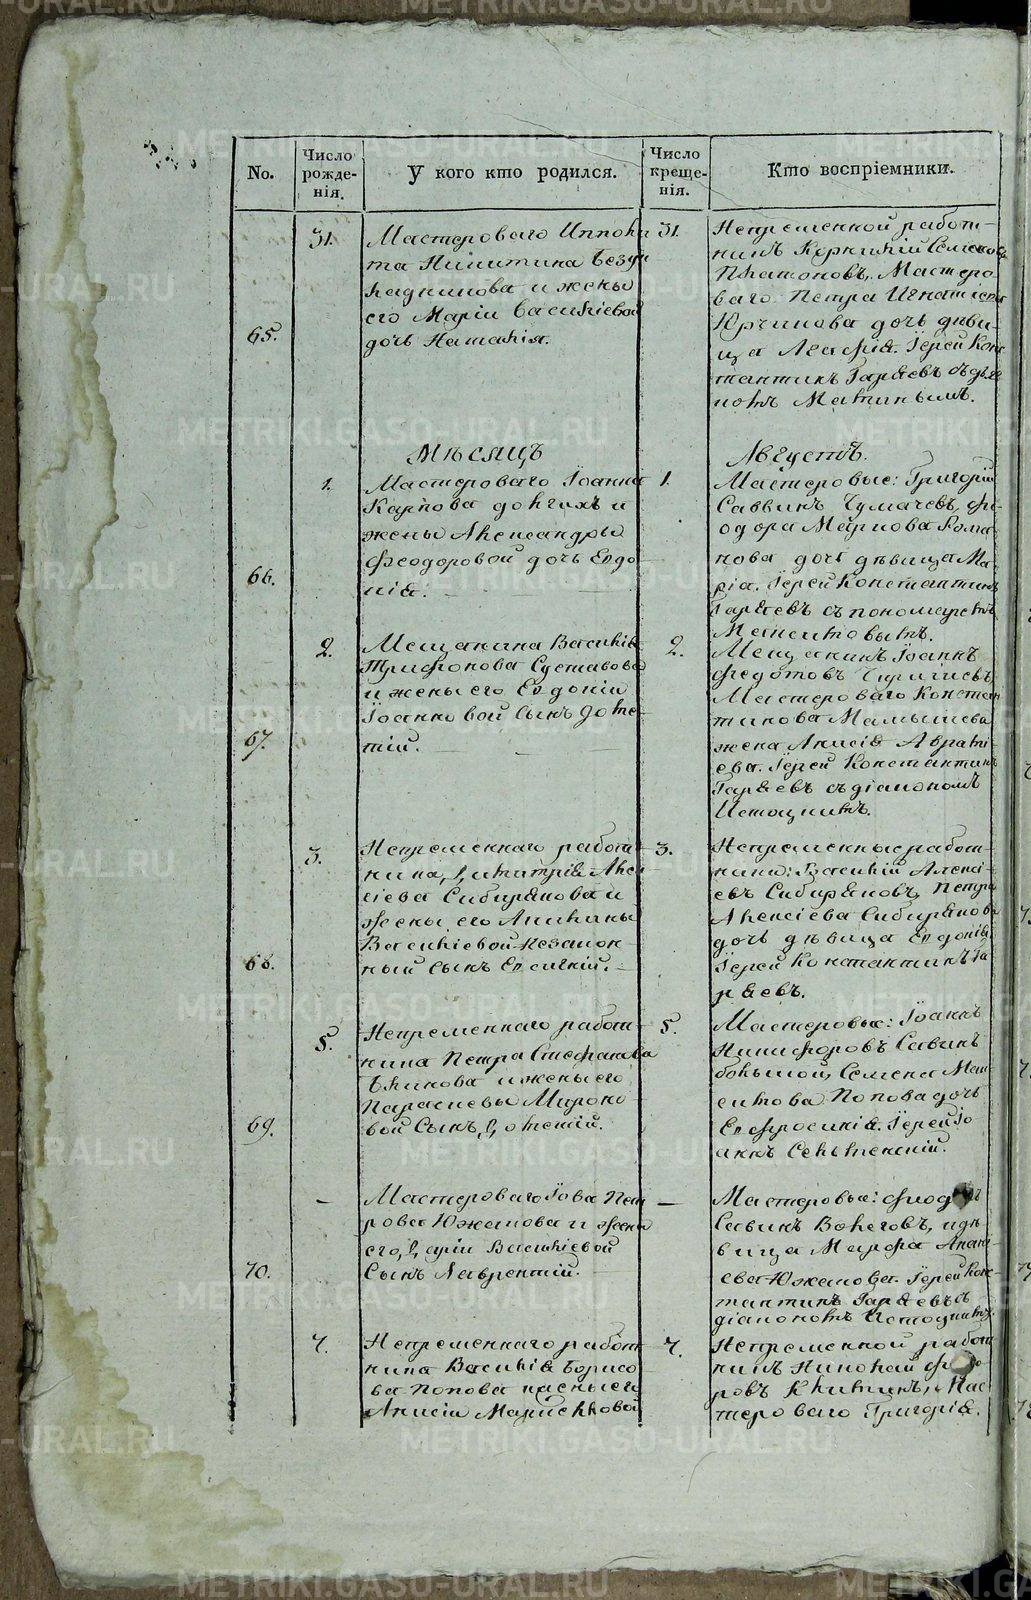 No.
Число рожде-нія.
У кого кто родился.
Число креще-нія.
Кто воспріемники.
65.
31.
Мастероваго Ипполи
та Никитина Безу
кладникова и жены
его Маріи Васильевой
дочь Наталія.
31.
Непременной работ-
никъ
Платоновъ, Мастеро
ваго Петра Игнатіева
дочь дѣви-
ца Агафія. Іерей Конс
тантинъ Гаряевъ съ дья
Мѣсяцъ
Августъ.
66.
1.
Мастероваго Іоанна
Карпова долгихъ и
жены Александры
Феодоровой дочь Евдо
кія.
1.
Мастеровые: Григорій
Саввинъ Чумачевъ, Фе-
одора Рома
нова дочь дѣвица Ма
рія. Іерей Константинъ
Гаряевъ съ пономаремъ
67.
2.
Мещанина Василія
Трифонова
и жены его Евдокіи
Іоанновой сынъ Доме-
тій.
2.
Мещанинъ Іоаннъ
Федотовъ
Мастероваго Констан
тинова Мамышева
жена Анисія Аврамі-
ева. Іерей Константинъ
Гаряевъ съ діакономъ
68.
3.
Непременнаго работ-
ника, Димитрія Алек
сіева Сибирякова и
жены его Акилины
Васильевой незакон-
ный сынъ Евсигній.
3.
Непременные работ-
ники: Василій Алексі-
евъ Сибиряковъ, Петра
Алексіева Сибирякова
дочь дѣвица Евдокія,
Іерей Константинъ Га
ряевъ.
69.
5.
Непременнаго работ-
ника Петра Стефанова
и жены его
Параскевы Мироно-
вой Сынъ, Дометій.
5.
Мастеровые: Іоаннъ
Никифоровъ Савинъ
большой, Семена Мак-
Попова дочь
Евфросинія. Іерей Іо
аннъ Сельменскій.
70.
Мастероваго Іова Пет
рова Южакова и жены
его, Даріи Васильевой
Сынъ Лаврентій.
Мастеровые: Феод
Савинъ и дѣ
вица Марфа Анани-
ева Южакова. Іерей Конс-
тантинъ Гаряевъ съ
діакономъ
7.
Непременнаго работ
ника Василія Борисо
ва Попова и жены его
Анисіи
7.
Непременной работ
никъ Николай
ровъ Мас
тероваго Григорія.
METRIKI.GASO-URAL.RU